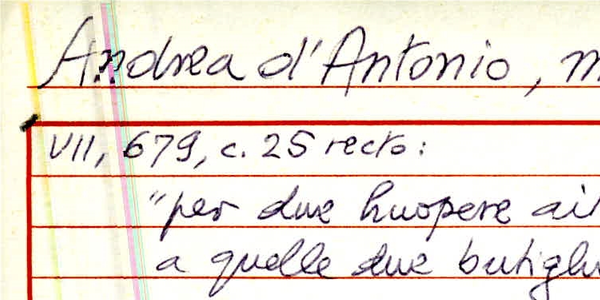 Andrea d'Antonio, m
VII, 679, c. 25 recto:
"per due huopere ai
a quelle due butighe